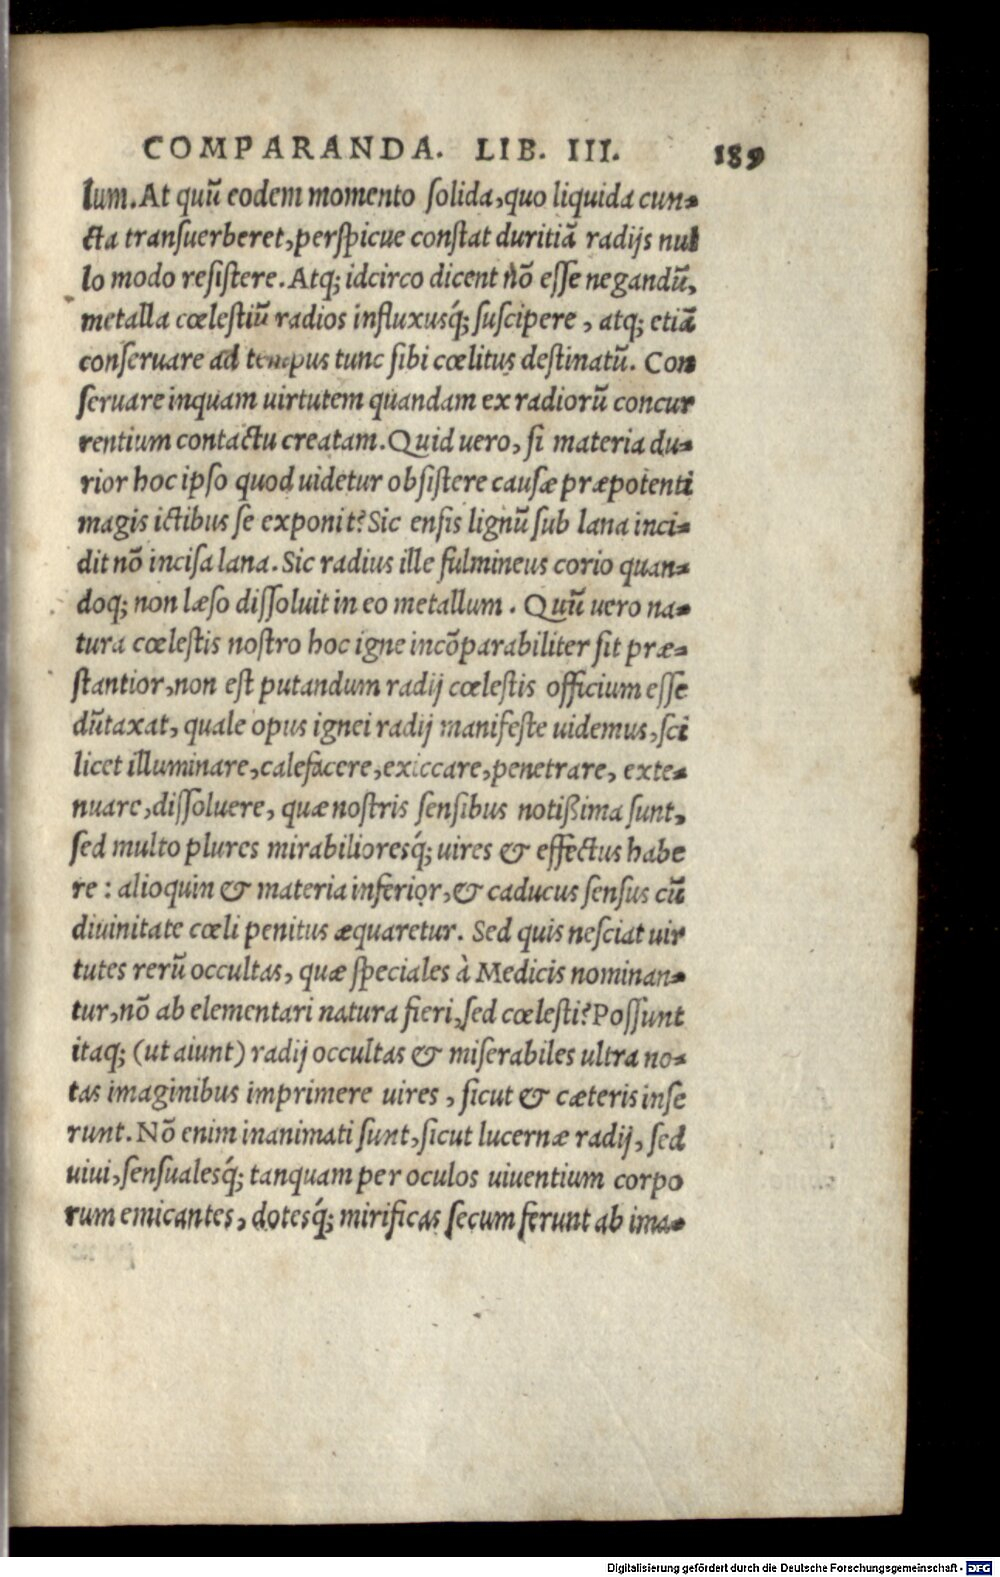 COMPARANDA. LIB. III. 189
lum. At quũ eodem momento ſolida, quo liquida cun-
cta tranſuerberet, perſpicue conſtat duritiã radijs nul
lo modo reſiſtere. Atq; idcirco dicent nõ eſſe negandũ,
metalla cœleſtiũ radios influxusq́; ſuſcipere, atq; etiã
conſeruare ad tempus tunc ſibi cœlitus deſtinatũ. Con
ſeruare inquam uirtutem quandam ex radiorũ concur
rentium contactu creatam. Quid uero, ſi materia du-
rior hoc ipſo quod uidetur obſiſtere cauſæ præpotenti
magis ictibus ſe exponit? Sic enſis lignũ ſub lana inci-
dit nõ inciſa lana. Sic radius ille fulmineus corio quan-
doq; non læſo diſſoluit in eo metallum. Quũ uero na-
tura cœleſtis noſtro hoc igne incõparabiliter ſit præ-
ſtantior, non eſt putandum radij cœleſtis officium eſſe
dũtaxat, quale opus ignei radij manifeſte uidemus, ſci
licet illuminare, calefacere, exiccare, penetrare, exte-
nuare, diſſoluere, quæ noſtris ſenſibus notißima ſunt,
ſed multo plures mirabilioresq́; uires & effectus habe
re: alioquin & materia inferior, & caducus ſenſus cũ
diuinitate cœli penitus æquaretur. Sed quis neſciat uir
tutes rerũ occultas, quæ ſpeciales à Medicis nominan-
tur, nõ ab elementari natura fieri, ſed cœleſti? Poſſunt
itaq; (ut aiunt) radij occultas & miſerabiles ultra no-
tas imaginibus imprimere uires, ſicut & cæteris inſe
runt. Nõ enim inanimati ſunt, ſicut lucernæ radij, ſed
uiui, ſenſualesq́; tanquam per oculos uiuentium corpo
rum emicantes, dotesq́; mirificas ſecum ferunt ab ima-
Digitalisierung gefördert durch die Deutsche Forschungsgemeinschaft - DFG